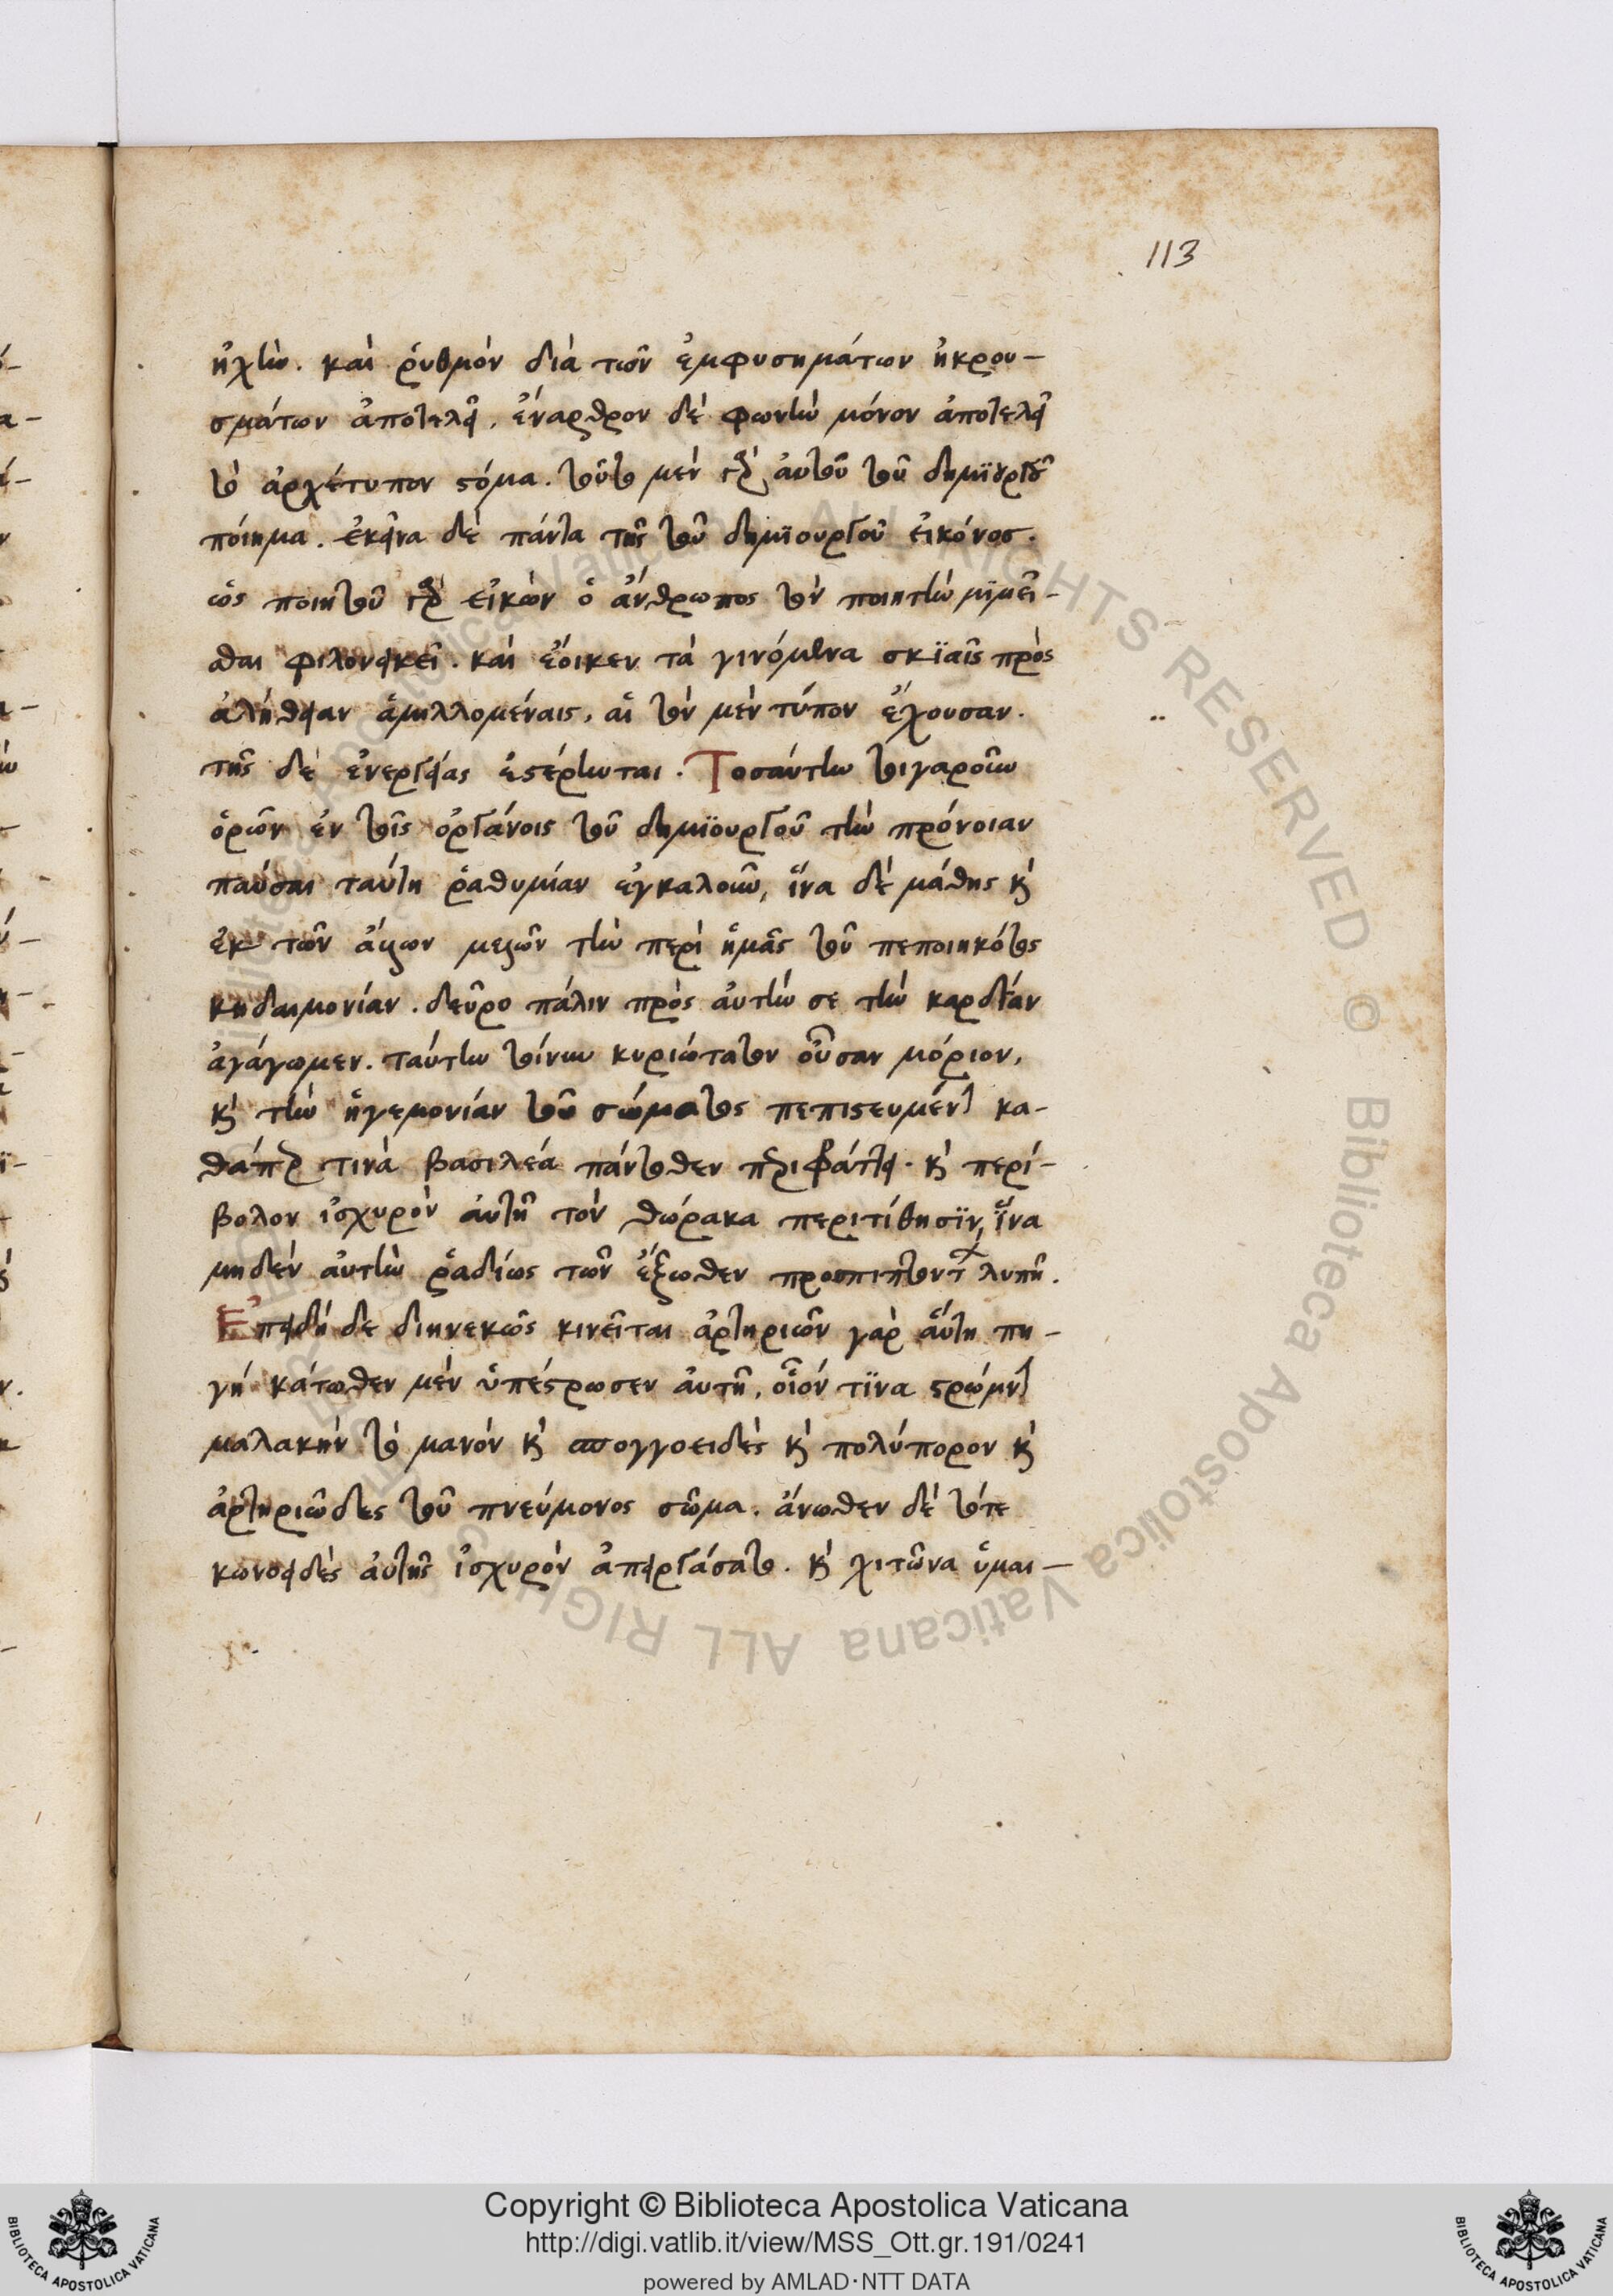 113
ἠχὴν. καὶ ῥυθμὸν διὰ τῶν ἐμφυσημάτων ἠκρου-
σμάτων ἀποτελεῖ. ἔναρθρον δὲ φωνὴν μόνον ἀποτελεῖ
τὸ ἀρχέτυπον στόμα. τοῦτο μὲν γὰρ αὐτοῦ τοῦ δημϊουργοῦ
ποίημα. ἐκεῖνα δὲ πάντα τῆς τοῦ δημϊουργοῦ εἰκόνος.
ὡς ποιητοῦ γὰρ εἰκὼν ὁ ἄνθρωπος τὸν ποιητὴν μϊμεῖ-
σθαι φιλονεικεῖ. καὶ ἔοικεν τὰ γινόμενα σκϊαῖς πρὸς
ἀλήθειαν ἁμιλλομέναις, αἳ τὸν μὲν τύπον ἔχουσαν.
τῆς δὲ ἐνεργείας ἐστέρηνται. Τοσαύτην τοιγαροῦν
ὁρῶν ἐν τοῖς ὀργάνοις τοῦ δημϊουργοῦ τὴν πρόνοιαν
παῦσαι ταύτη ῥαθυμίαν ἐγκαλοῦν, ἵνα δὲ μάθης κὶ
ἐκ τῶν ἄλλων μελῶν τὴν περὶ ἡμᾶς τοῦ πεποιηκότος
κηδαιμονίαν. δεῦρο πάλιν πρὸς αὐτήν σε τὴν καρδίαν
ἀγάγωμεν. ταύτην τοίνυν κυριώτατον οὖσαν μόριον,
κὶ τὴν ἡγεμονίαν τοῦ σώματος πεπιστευμένην κα-
θάπερ τινὰ βασιλέα πάντοθεν περιφράττει. κὶ περί-
βολον ἰσχυρὸν αὐτῆ τὸν θώρακα περιτίθησϊν, ἵνα
μηδὲν αὐτὴν ῥαδίως τῶν ἔξωθεν προσπιπτόντων λυπῆ.
Ἐπειδὴ δε διηνεκῶς κινεῖται ἀρτηριῶν γὰρ αὕτη πη-
γή κάτωθεν μὲν ὑπέστρωσεν αὐτῆ, οἷόν τϊνα στρωμνὴν
μαλακὴν τὸ μανὸν κὶ σπογγοειδὲς κὶ πολύπορον κὶ
ἀρτηριῶδες τοῦ πνεύμονος σῶμα. ἄνωθεν δὲ τότε
κωνοειδὲς αὐτῆς ἰσχυρὸν ἀπειργάσατο. κὶ χιτῶνα ὑμαι-
Copyright © Biblioteca Apostolica Vaticana
http://digi.vatlib.it/view/MSS_Ott.gr.191/0241
powered by AMLAD·NTT DATA